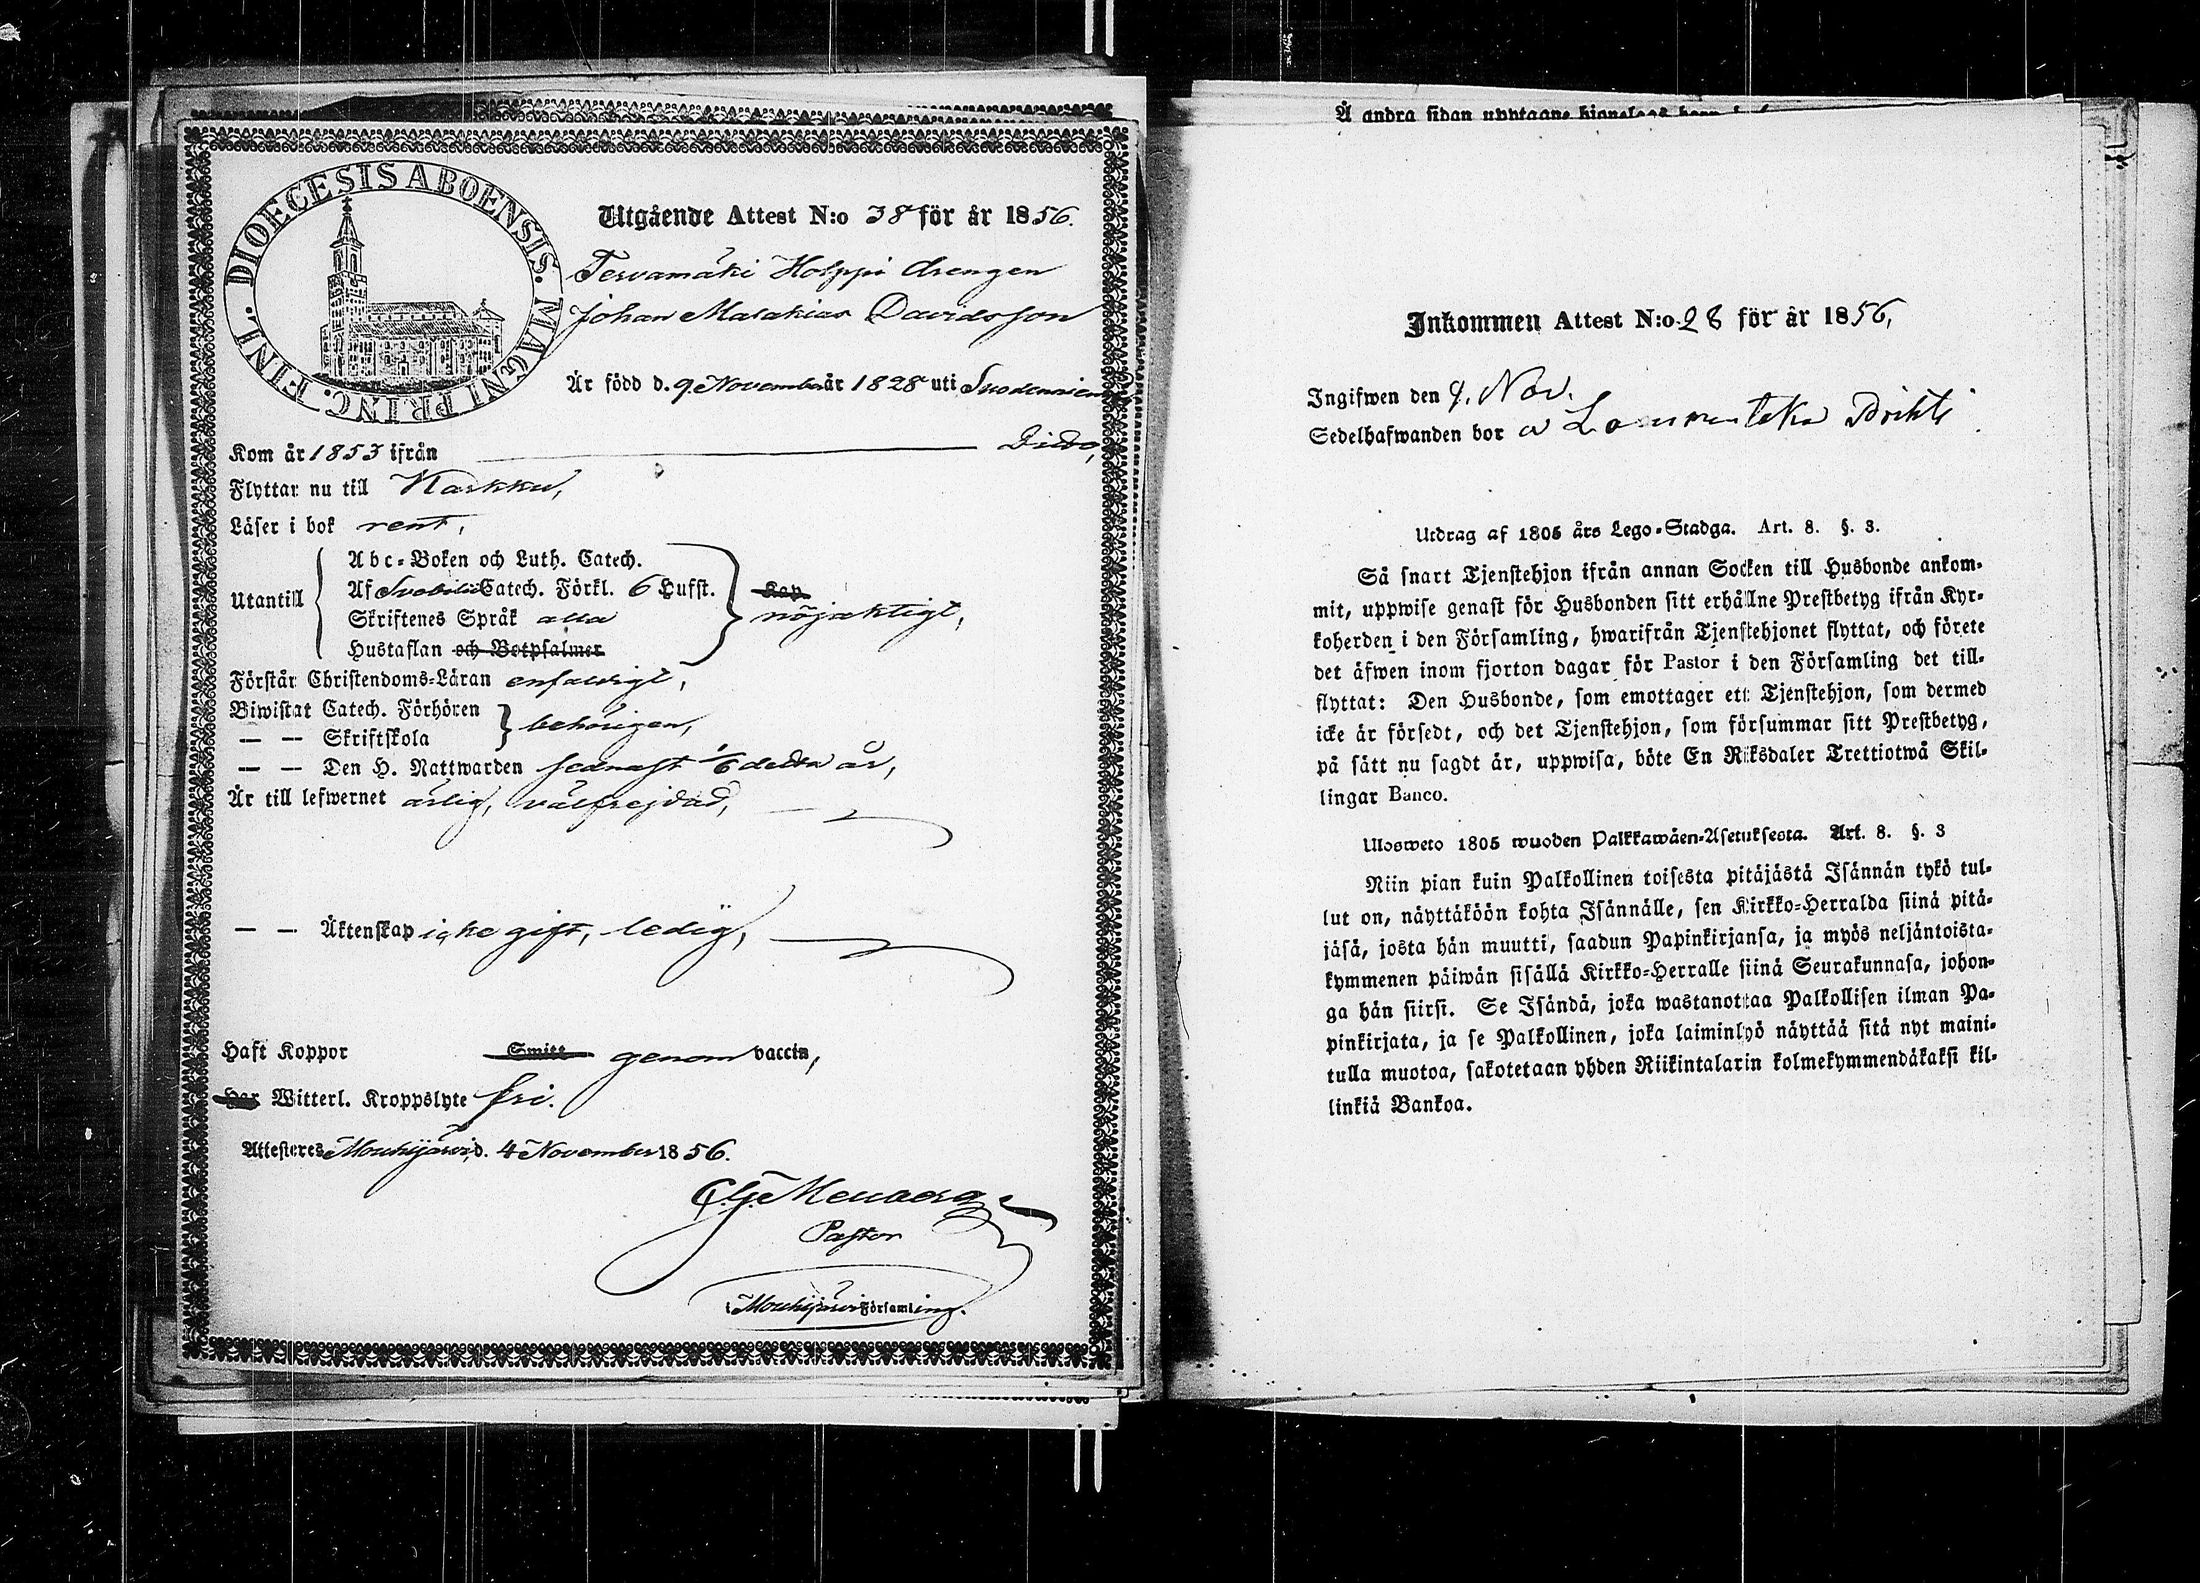 DIOECESIS ABOENSIS. MAGNI PRINC. FINL.
Utgående Attest N:o 38 för år 1856.
Tervamäki Holppi drengen
Johan Malakias Davidsson
Är född d. 9 November år 1828 uti Suodenniemi
Kom år 1853 ifrån Dito,
Flyttar nu till Karkku,
Läser i bok rent,
Utantill
Abc-Boken och Luth. Catech.
Af Svebilii Catech. Förkl. 6 Hufst.
Skriftenes Språk alla
Hustaflan och Botpsalmer
Kap.
nöjaktigt,
Förstår Christendoms-Läran enfaldigt,
Biwistat Catech. Förhören
— — Skriftskola
behörigen,
— — Den H. Nattwarden sednast 1/6 detta år,
Är till lefwernet ärlig, välfrejdad,
— — Äktenskap icke gift, ledig,
Haft Koppor Smitt genom vaccin,
Har Witterl. Kroppslyte fri.
Attesteres Mouhijärvi d. 4 November 1856.
Pastor
i Mouhijärvi Församling.
Å andra sidan upptagne
Inkommen Attest N:o 28 för år 1856,
Ingifwen den 9. Nov.
Sedelhafwanden bor
Utdrag af 1805 års Lego-Stadga. Art. 8. §. 3.
Så snart Tjenstehjon ifrån annan Socken till Husbonde ankom-
mit, uppwise genast för Husbonden sitt erhållne Prestbetyg ifrån Kyr-
koherden i den Församling, hwarifrån Tjenstehjonet flyttat, och förete
det äfwen inom fjorton dagar för Pastor i den Församling det till-
flyttat: Den Husbonde, som emottager ett Tjenstehjon, som dermed
icke är försedt, och det Tjenstehjon, som försummar sitt Prestbetyg,
på sätt nu sagdt är, uppwisa, böte En Riksdaler Trettiotwå Skil-
lingar Banco.
Ulosweto 1805 wuoden Palkkawäen-Asetuksesta. Art. 8. §. 3
Niin pian kuin Palkollinen toisesta pitäjästä Isännän tykö tul-
lut on, näyttäköön kohta Isännälle, sen Kirkko-Herralda siinä pitä-
jäsä, josta hän muutti, saadun Papinkirjansa, ja myös neljäntoista-
kymmenen päiwän sisällä Kirkko-Herralle siinä Seurakunnasa, johon-
ga hän siirsi. Se Isändä, joka wastanottaa Palkollisen ilman Pa-
pinkirjata, ja se Palkollinen, joka laiminlyö näyttää sitä nyt maini-
tulla muotoa, sakotetaan yhden Riikintalarin kolmekymmendäkaksi kil-
linkiä Bankoa.